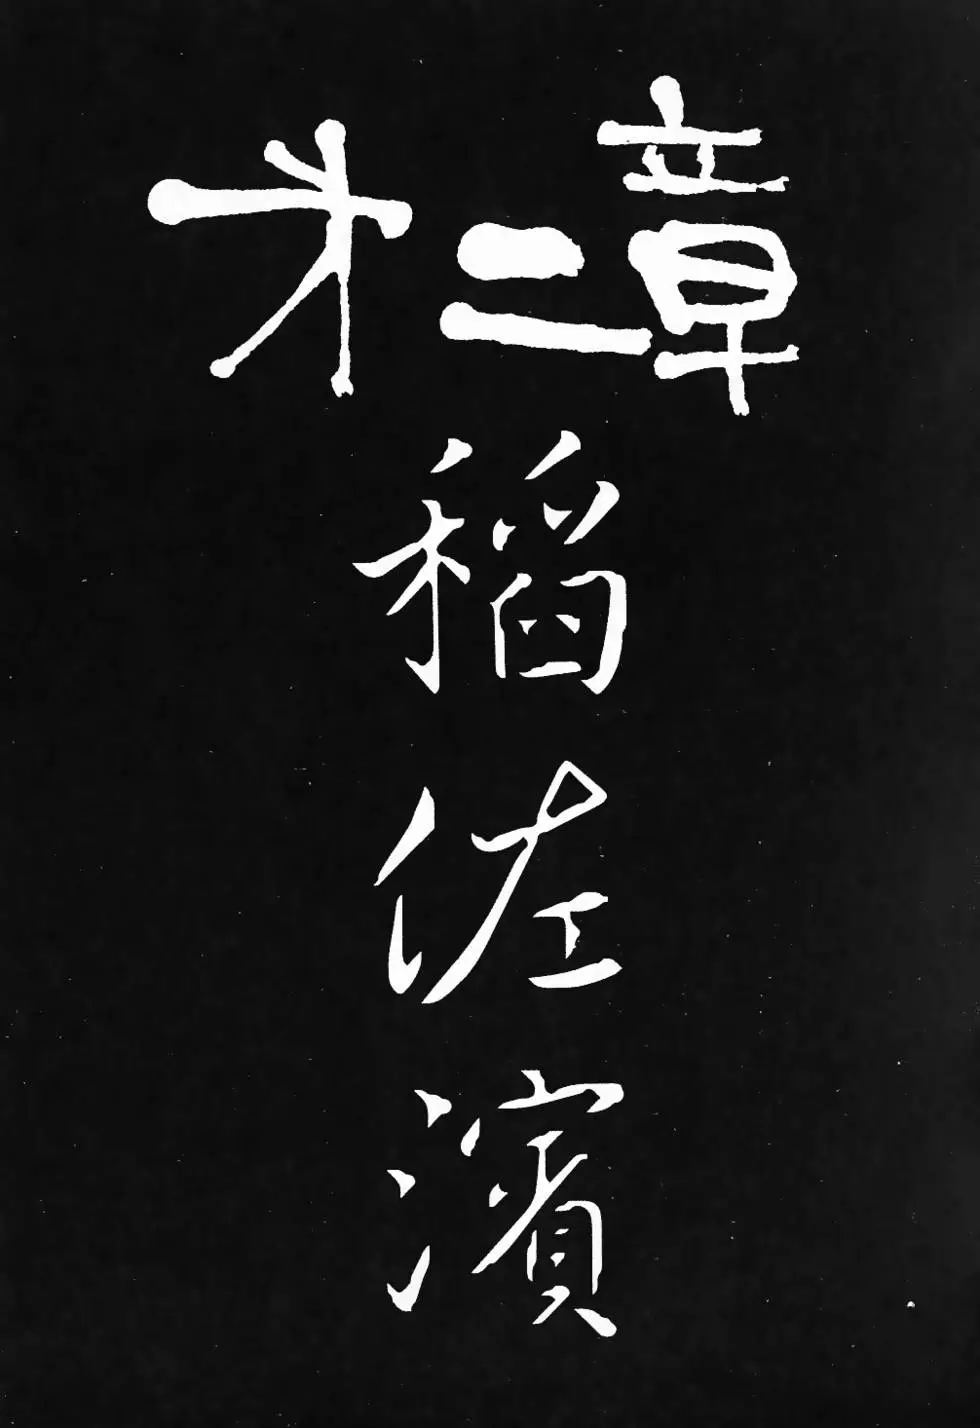 才二章
稻佐濱